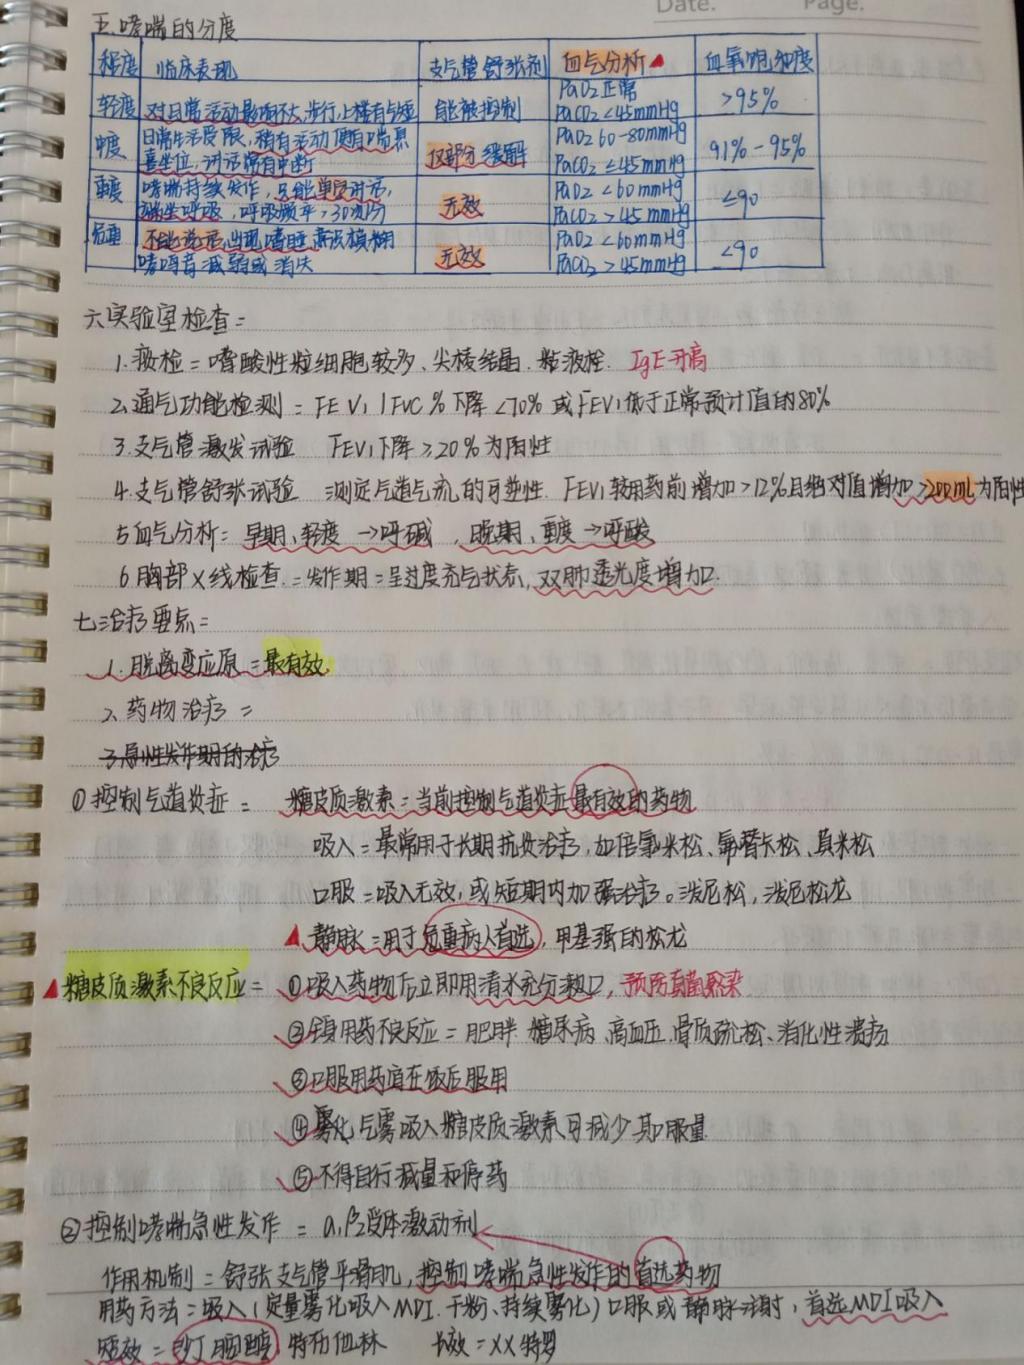 Date. Page.
五.哮喘的分度
程度 临床表现 支气管舒张剂 血气分析▲ 血氧饱和度
轻度 对日常活动影响不大,步行,上楼有气短 能被控制 PaO2正常 PaCO2<45mmHg >95%
中度 日常生活受限,稍有活动便有喘息 喜坐位,讲话常有中断 仅部分缓解 PaO2 60-80mmHg PaCO2≤45mmHg 91%-95%
重度 哮喘持续发作,只能单字对话,端坐呼吸,呼吸频率>30次/分 无效 PaO2<60mmHg PaCO2>45mmHg ≤90
危重 不能说话,出现嗜睡,意识模糊 哮鸣音减弱或消失 无效 PaO2<60mmHg PaCO2>45mmHg <90
六实验室检查=
1.痰检=嗜酸性粒细胞较多、尖棱结晶.粘液栓. IgE升高
2.通气功能检测=FEV1/FVC%下降<70%或FEV1低于正常预计值的80%
3.支气管激发试验 FEV1下降≥20%为阳性
4.支气管舒张试验 测定气道气流的可逆性.FEV1较用药前增加>12%且绝对值增加>200mL为阳性
5血气分析:早期、轻度→呼碱,晚期、重度→呼酸
6胸部X线检查.=发作期=呈过度充气状态,双肺透光度增加.
七治疗要点=
1.脱离变应原=最有效.
2.药物治疗=
3急性发作期的治疗
①控制气道炎症= 糖皮质激素=当前控制气道炎症最有效的药物
吸入=最常用于长期抗炎治疗,如倍氯米松、氟替卡松、莫米松
口服=吸入无效,或短期内加强治疗。泼尼松,泼尼松龙
▲静脉=用于危重病人首选,甲基强的松龙
▲糖皮质激素不良反应= ①吸入药物后立即用清水充分漱口,预防真菌感染
②全身用药不良反应=肥胖 糖尿病、高血压.骨质疏松、消化性溃疡
③口服用药宜在饭后服用
④雾化气雾吸入糖皮质激素可减少其服量
⑤不得自行减量和停药
②控制哮喘急性发作=a.β2受体激动剂
作用机制=舒张支气管平滑肌,控制哮喘急性发作的首选药物
用药方法=吸入(定量雾化吸入MDI.干粉、持续雾化)口服或静脉注射,首选MDI吸入
短效=沙丁胺醇 特布他林 长效=XX特罗